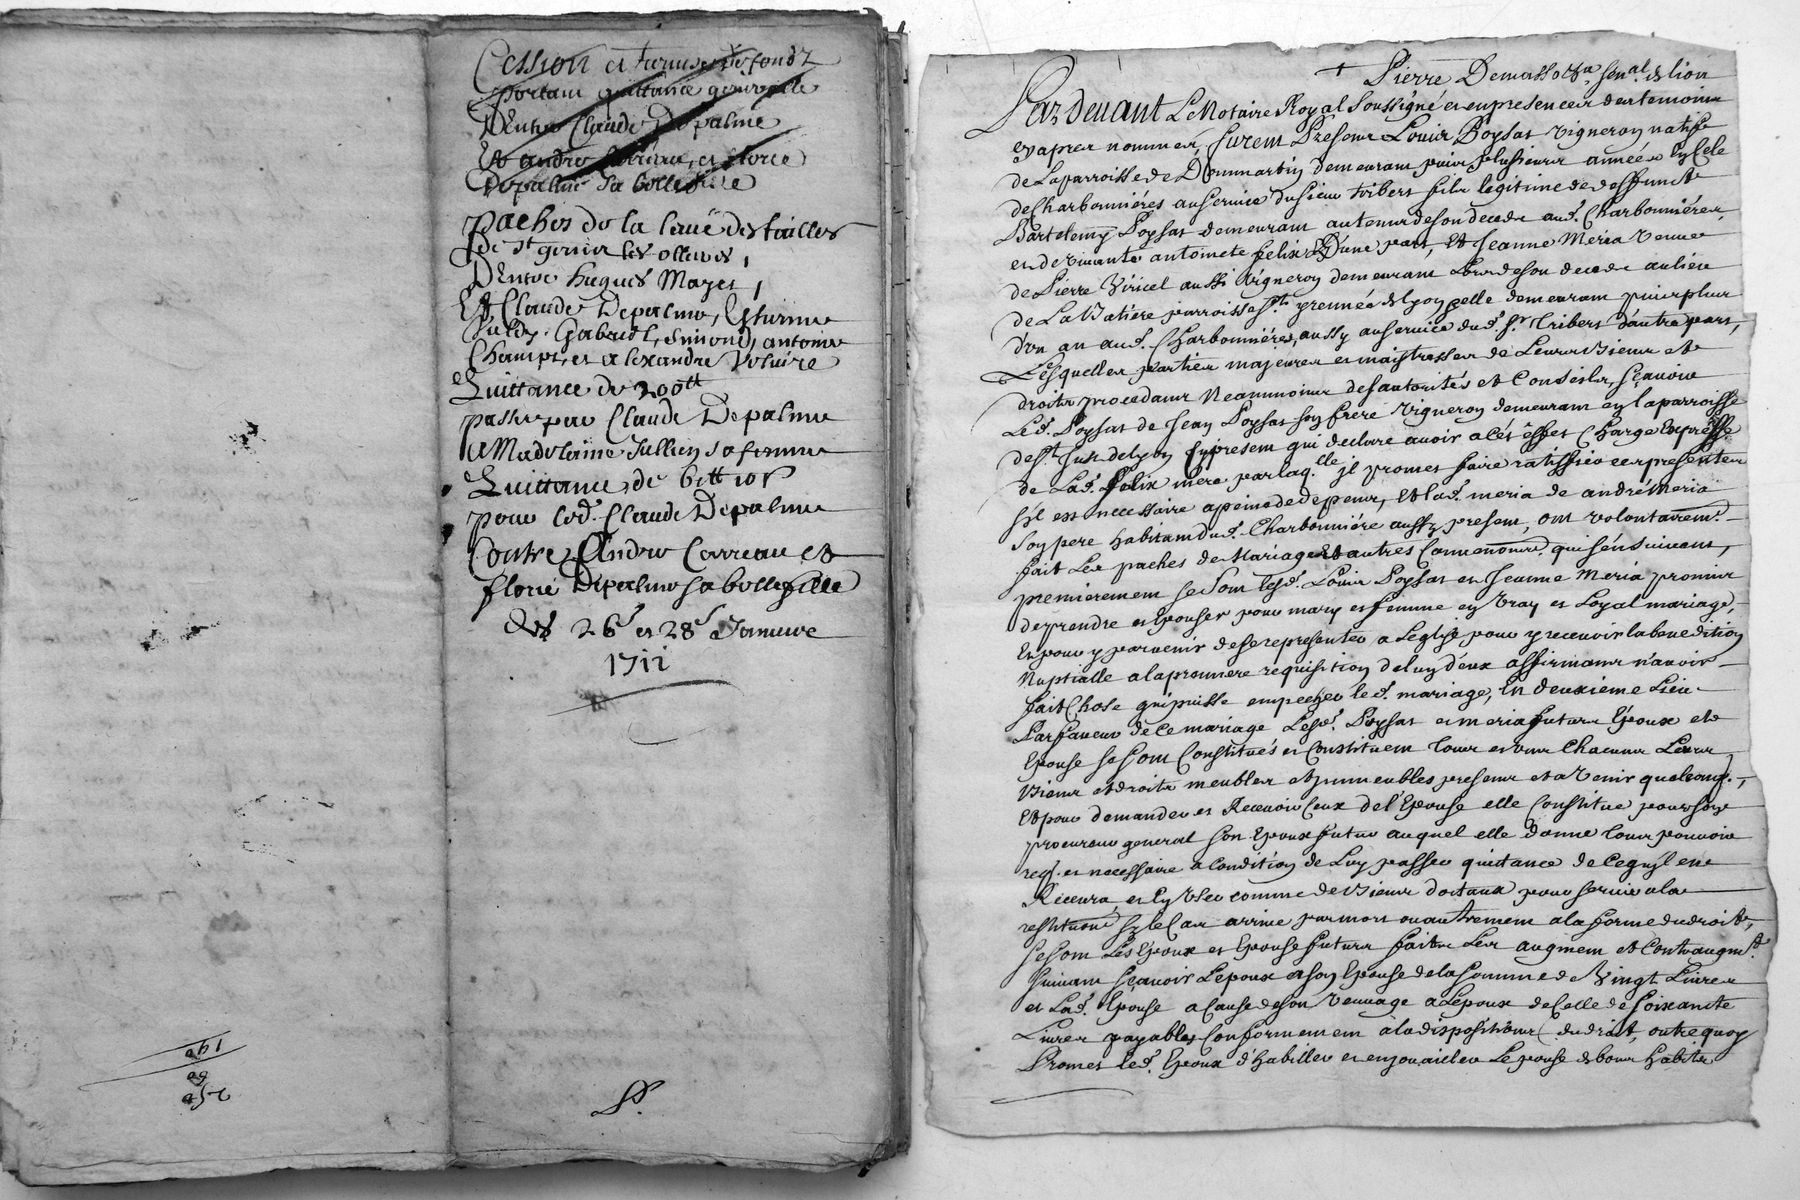 Cession et remise de fondz
portant quittance generalle
Dentre Claude Depalme
Et andre et florie
Depalme sa belle fille
paches de la leuë des tailles
de st genis les ollieres,
Dentre hugues Mazet,
Et Claude Depalme, Esturme
Gabriel, Simond, antoine
Champt, et alexandre Voluire
Quittance de 200tt
passee par Claude Depalme
a Madelaine Jullien sa femme
Quittance de 6tt 10s
pour led. Claude Depalme
Contre Andre Carreau et
florie Depalme sa belle fille
des 26e et 28e Januire
1711
140
60
250
Pierre Demasso sen.al de lion
Par deuant Le Notaire Royal Soussigné et en presence des temoins
cy apres nommes, furent Presens Louis Poysat vigneron natif
de La parroisse de Dommartin demeurant puis plusieurs années en celle
de Charbonniéres au seruice du sieur tribert fils legitime de deffunct
Bartelemy Poysat demeurant au tems de son deceds aud. Charbonniéres,
et de viuante antoinete felix D'une part, Et Jeanne Meria Veuue
de Pierre Viricel aussi vigneron demeurant Lors de son deceds au lieu
de La Batiére parroisse st yrenneé de lyon, elle demeurant puis plus
d'un an aud. Charbonniéres, aussy au seruice dud. sr Tribert d'autre part,
Lesquelles parties majeures et maistresses de Leurs biens et
droits procedans Neanmoins des autorités et Conseils, sçauoir
Led. Poysat de Jean Poysat son frere vigneron demeurant en la parroisse
de st Just de lyon, Cy present qui declare auoir à cés effet Charge Expresse
de Lad. felix mere par laq.lle il promet faire ratiffier ces presentes
s'il est necessaire a peine de depens, Et lad. meria de andré Meria
son pere habitant dud. Charbonniére aussy present, ont volontairemt.
fait Les paches de Mariage Et autres Conuentions qui sénsuiuent,
premierement se sont lesd. Louis Poysat et Jeanne Meria promis
de prendre et Epouser pour mary et femme en vray et Loyal mariage,
Et pour y paruenir de se representer a L'eglise pour y receuoir la benedition
Nuptialle a la premiere requisition de l'un d'eux affirmans n'auoir
fait Chose qui puisse empecher led. mariage, En deuxieme Lieu
Par faueur de Ce mariage Lesd. Poysat et meria futurs Epoux et
Epouse se sont Constitués et Constituent tous et vns Chacuns Leurs
Biens et droits meubles et immeubles presens et a Venir quelconq.,
Et pour demander et Receuoir Ceux de l'Epouse elle Constitue pour son
procureur general son Epoux futur auquel elle donne tout pouuoir
req. et necessaire a condition de Luy passer quittance de Ce qu'il en
Receura, et En Vser comme de Biens dotaux pour seruir a la
restitution sy le Cas arriue par mort ou autrement a la forme du droit,
se sont Les Epoux et Epouse futurs faits Les augment et Contraugmt.
suiuans sçauoir L'epoux a son Epouse de la somme de Vingt Liures
et Lad. Epouse a Cause de son Veuuage a L'epoux de Celle de soixante
Liures payables Conformement à la disposition du droit, outre quoy
Promet led. Epoux d'habiller et enjouailler L'epouse de bons habits